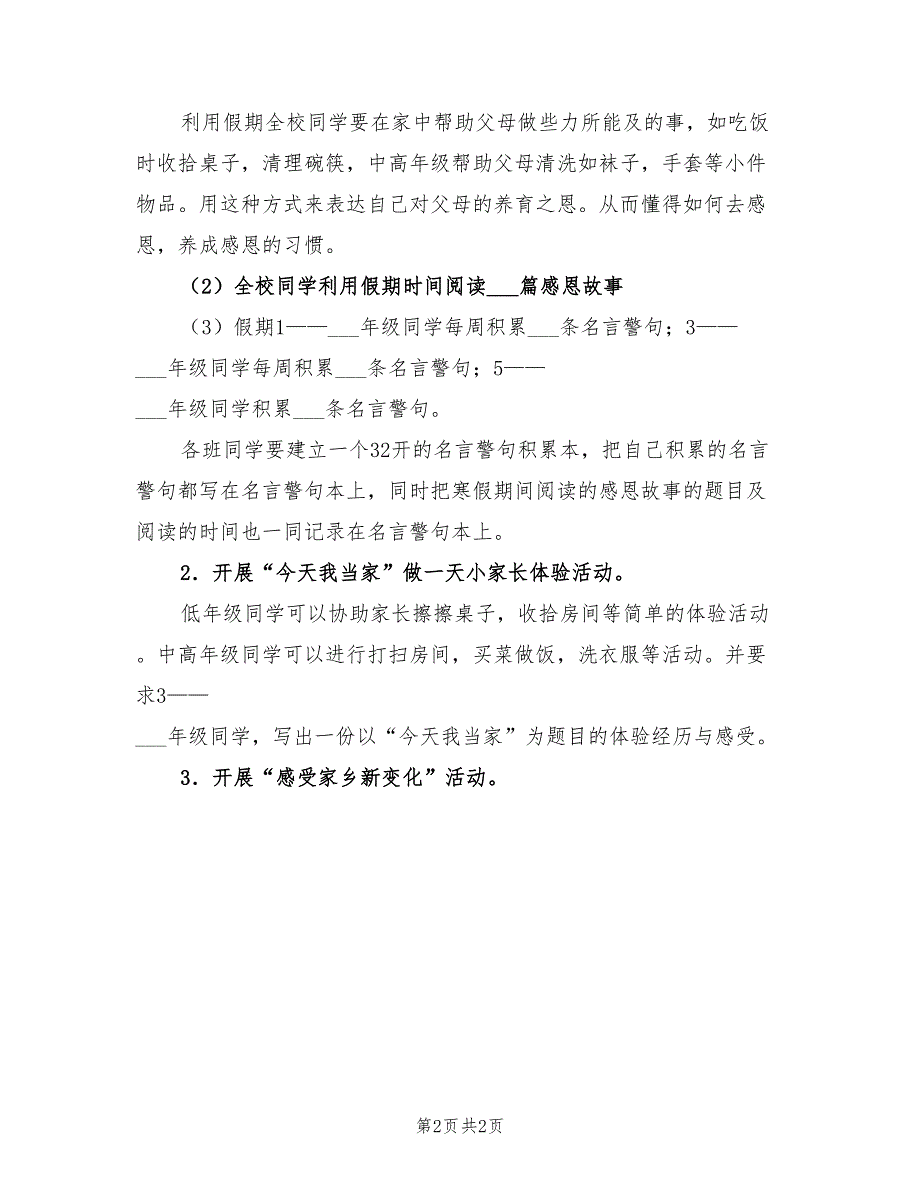 利用假期全校同学要在家中帮助父母做些力所能及的事，如吃饭
时收拾桌子，清理碗筷，中高年级帮助父母清洗如袜子，手套等小件
物品。用这种方式来表达自己对父母的养育之恩。从而懂得如何去感
恩，养成感恩的习惯。
（2）全校同学利用假期时间阅读___篇感恩故事
（3）假期1——___年级同学每周积累___条名言警句；3——
___年级同学每周积累___条名言警句；5——
___年级同学积累___条名言警句。
各班同学要建立一个32开的名言警句积累本，把自己积累的名言
警句都写在名言警句本上，同时把寒假期间阅读的感恩故事的题目及
阅读的时间也一同记录在名言警句本上。
2．开展“今天我当家”做一天小家长体验活动。
低年级同学可以协助家长擦擦桌子，收拾房间等简单的体验活动
。中高年级同学可以进行打扫房间，买菜做饭，洗衣服等活动。并要
求3——
___年级同学，写出一份以“今天我当家”为题目的体验经历与感受。
3．开展“感受家乡新变化”活动。
第2页 共2页